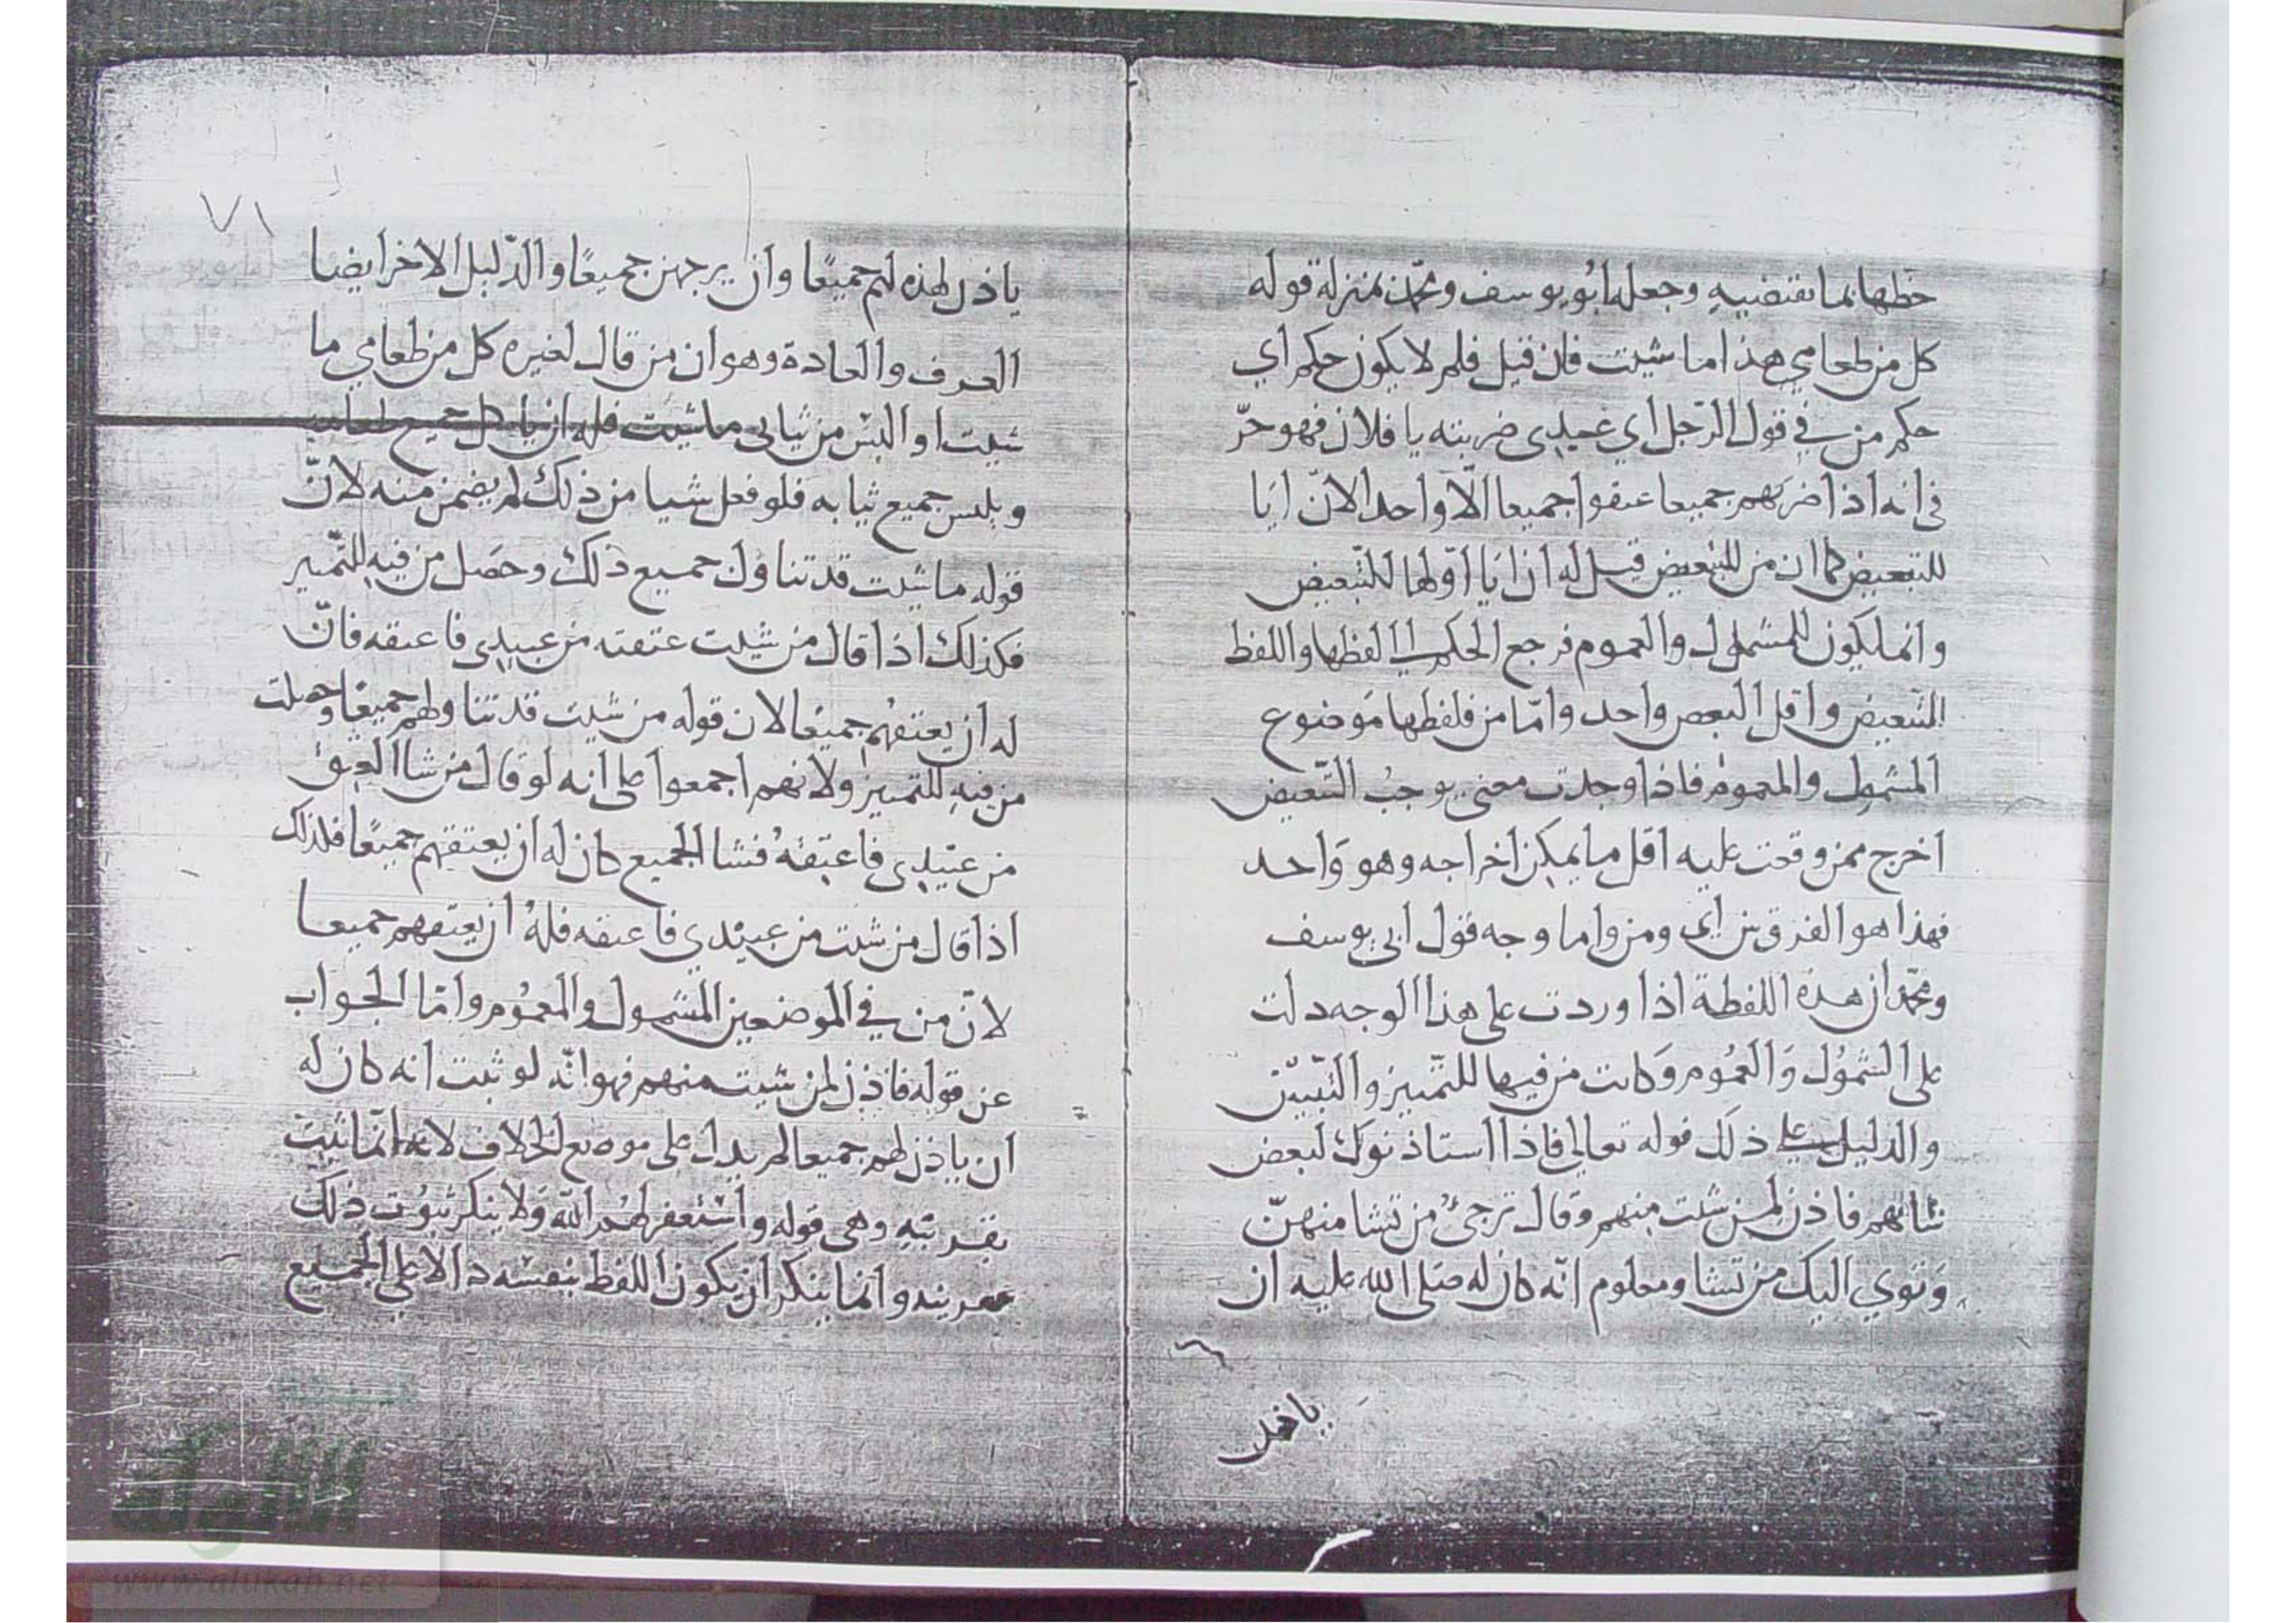 حظها بما تقتضيه وجعله ابو يوسف ومحمد بمنزلة قوله
كل من طعامي هذا ما شيت فان قيل فلم لا يكون حكم اي
حكم من في قول الرجل اي عبيدى ضربته يا فلان فهو حرّ
في انه اذا ضربهم جميعا عتقوا جميعا الّا واحدا لانّ ايا
للتبعيض كما ان من للتبعيض قيل له ان ايا اوّلها للتّبعيض
وانما يكون للشمول والعموم فرجع الحكم الى لفظها واللفظ
للتبعيض واقل البعض واحد وامّا من فلفظها موضوع
للشمول والعموم فاذا وجدت معنى يوجب التّبعيض
اخرج ممن وقعت عليه اقل ما يمكن اخراجه وهو واحد
فهذا هو الفرق بين اي ومن واما وجه قول ابى يوسف
ومحمّد ان هذه اللفظة اذا وردت على هذا الوجه دلت
على الشمُول وَالعمُوم وَكانت من فيها للتّمييز والتّبيين
والدليل على ذلك قوله تعالى فاذا استاذنوك لبعض
شانهم فاذن لمن شئت منهم وَقال ترجئ من تشا منهنّ
وَتؤوي اليك من تشا ومعلوم انّه كان له صَلى الله عليه ان
ياذن
٧١
ياذن لهذه لهم جميعًا وان يرجهن جميعًا والدّليل الاخر ايضا
العرف والعادة وهو ان من قال لغيره كل من طعامي ما
شيت او البس من ثيابى ما شيت فله ان ياكل جميع طعامه
ويلبس جميع ثيابه فلو فعل شيا من ذلك لم يضمن منه لانّ
قوله ما شيت قد تناول جميع ذلك وحصَل من فيه للتّمييز
فكذلك اذا قال من شيت عتقته من عبيدى فاعتقه فانّ
له ان يعتقهُم جميعًا لان قوله من شيت قد تناولهم جميعًا وحصلت
من فيه للتمييز ولانهم اجمعوا على انه لو قال من شا العتق
من عبيدى فاعتقهُ فشا الجميع كان له ان يعتقهم جميعًا فلذلك
اذا قال من شئت من عبيدي فاعتقه فلهُ ان يعتقهم جميعا
لانّ من في الموضعين للشمول والعمُوم وامّا الجواب
عن قوله فاذن لمن شيت منهم فهو انّه لو ثبت انه كان له
ان ياذن لهم جميعا لم يدل على موضع الخلاف لانه انّما ثبت
بقرينه وهى قوله واستغفر لهُم الله وَلا ينكر ثبوُت ذلك
بقرينه وانما ينكر ان يكون اللفظ بنفسه دالا على الجميع
www.alukah.net